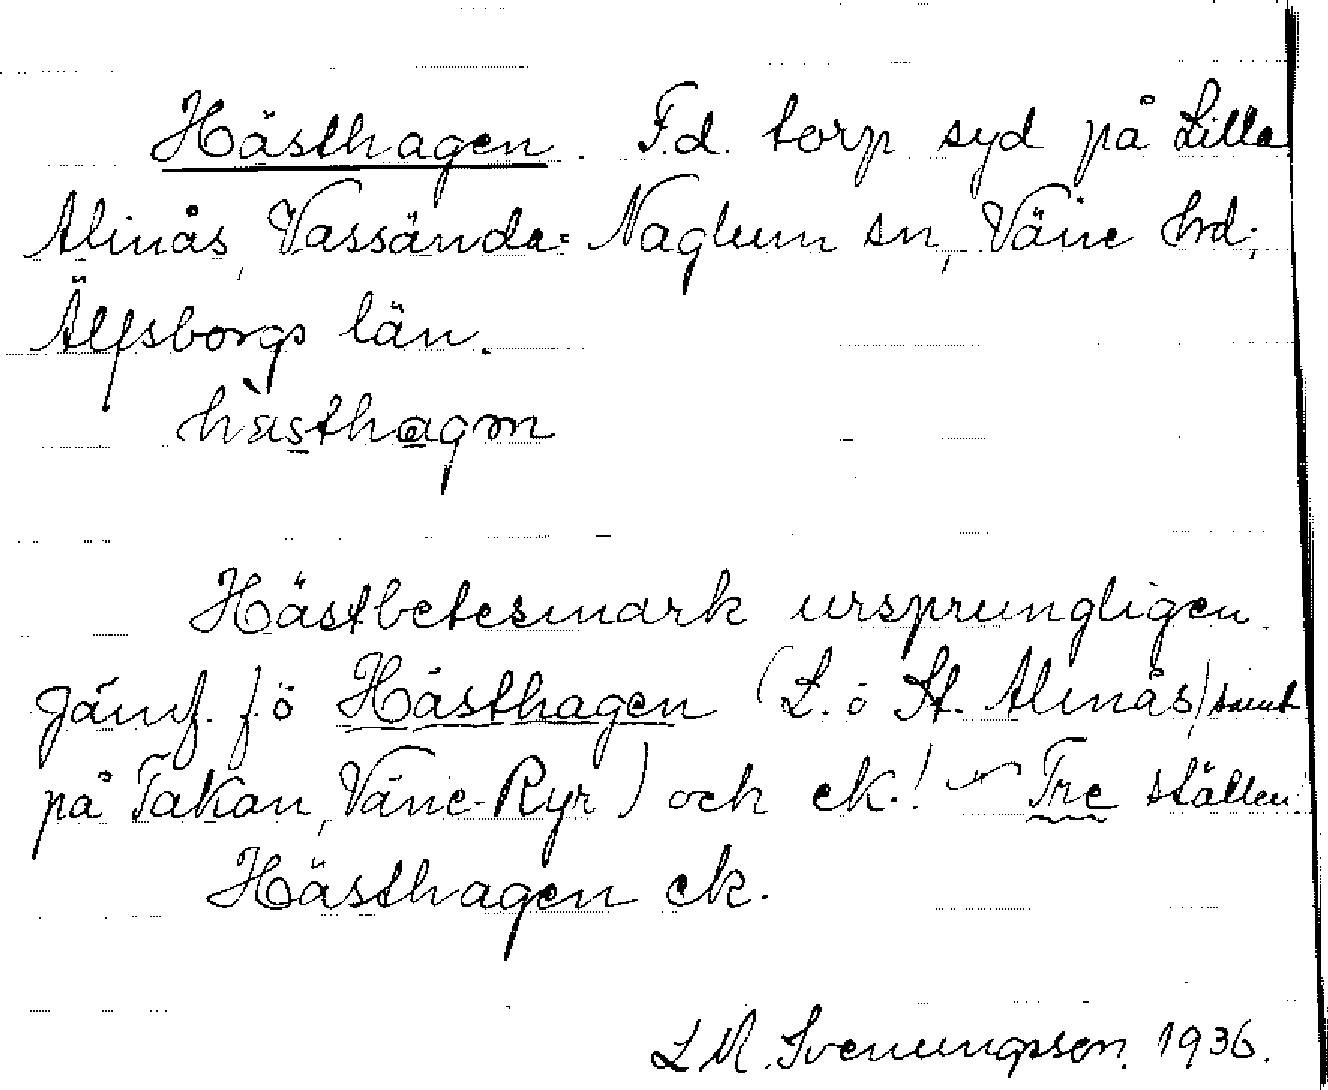 Hästhagen. F.d. torp syd på Lilla
Alnås, Vassända-Naglum sn, Väne hd,
Älfsborgs län.
hàsthagən
Hästbetesmark ursprungligen
Jämf. f.ö Hästhagen (L. o St. Alnås) samt
på Takan, Väne-Ryr) och ek.! - Tre ställen
Hästhagen ek.
L M. Svenungsson. 1936.